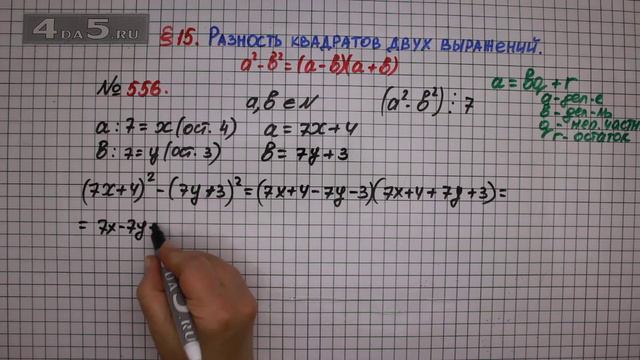 4DA5.RU
§15. Разность квадратов двух выражений.
a²-b²=(a-b)(a+b)
№556.
a,b∈N (a²-b²)⋮7
a=bq+r
a-дел-е
b-дел-ль
q-неп.частн
r-остаток
a:7=x(ост.4) a=7x+4
b:7=y(ост.3) b=7y+3
(7x+4)²-(7y+3)²=(7x+4-7y-3)(7x+4+7y+3)=
= 7x-7y
4DA5.RU